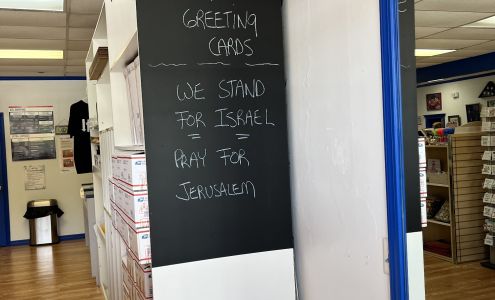 GREETING
CARDS
WE STAND
FOR ISRAEL
PRAY FOR
JERUSALEM